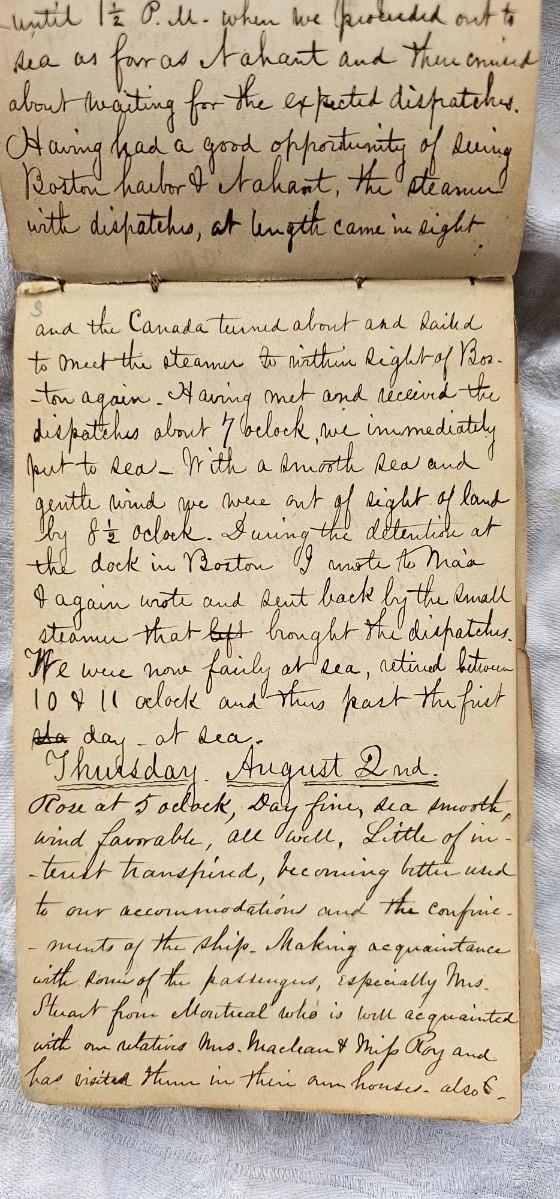 until 1½ P.M. when we proceeded out to
sea as far as Nahant and then cruised
about waiting for the expected dispatches.
Having had a good opportunity of seeing
Boston harbor & Nahant, the steamer
with dispatches, at length came in sight
and the Canada turned about and sailed
to meet the steamer to within sight of Bos-
-ton again. Having met and received the
dispatches about 7 oclock, we immediately
put to sea - With a smooth sea and
gentle wind we were out of sight of land
by 8½ oclock. During the detention at
the dock in Boston I wrote to Maa
& again wrote and sent back by the small
steamer that left brought the dispatches.
We were now fairly at sea, retired between
10 & 11 oclock and thus past the first
sea day - at sea.
Thursday. August 2nd.
Rose at 5 oclock, Day fine, sea smooth,
wind favorable, all well, Little of in-
-terest transpired, becoming better used
to our accommodations and the confine-
-ments of the ship - Making acquaintance
with some of the passengers, especially Mrs.
Stuart from Montreal who is well acquainted
with our relatives Mrs. Maclean & Miss Roy and
has visited them in their own houses - also